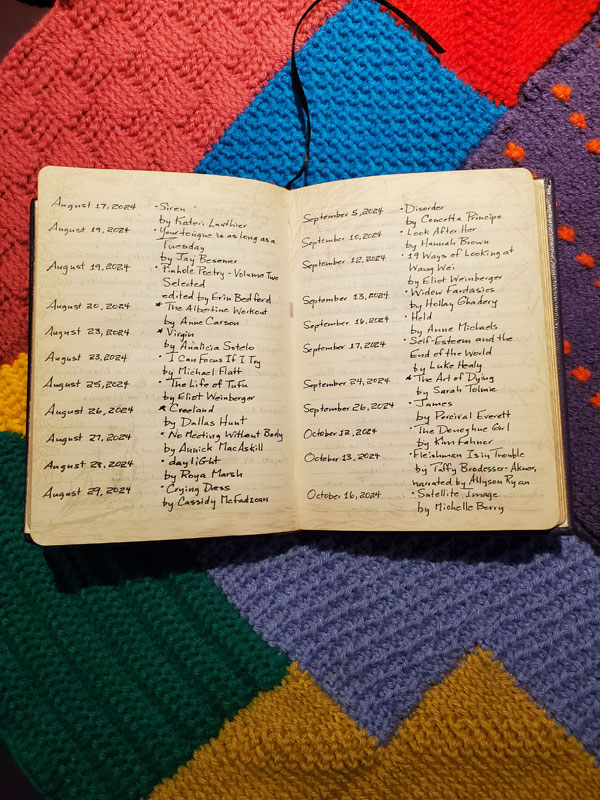 August 17, 2024 • Siren
by Kateri Lanthier
August 19, 2024 • Your tongue is as long as a
Tuesday
by Jay Besemer
August 19, 2024 • Pinhole Poetry - Volume Two
Selected
edited by Erin Bedford
August 20, 2024 * The Albertine Workout
by Anne Carson
August 23, 2024 * Virgin
by Analicia Sotelo
August 23, 2024 • I Can Focus If I Try
by Michael Flatt
August 25, 2024 • The Life of Tu Fu
by Eliot Weinberger
August 26, 2024 * Creeland
by Dallas Hunt
August 27, 2024 • No Meeting Without Body
by Annick MacAskill
August 28, 2024 • dayliGht
by Roya Marsh
August 29, 2024 • Crying Dress
by Cassidy McFadzean
September 5, 2024 • Disorder
by Concetta Principe
September 10, 2024 • Look After Her
by Hannah Brown
September 12, 2024 • 19 Ways of Looking at
Wang Wei
by Eliot Weinberger
September 13, 2024 • Widow Fantasies
by Hollay Ghadery
September 16, 2024 • Held
by Anne Michaels
September 17, 2024 • Self-Esteem and the
End of the World
by Luke Healy
September 24, 2024 * The Art of Dying
by Sarah Tolmie
September 26, 2024 • James
by Percival Everett
October 12, 2024 • The Donoghue Girl
by Kim Fahner
October 13, 2024 • Fleishman Is in Trouble
by Taffy Brodesser-Akner,
narrated by Allyson Ryan
October 16, 2024 • Satellite Image
by Michelle Berry